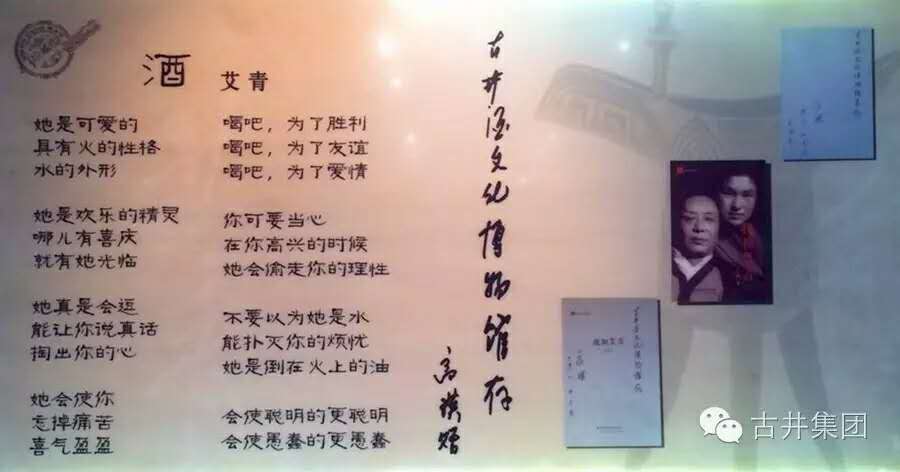 酒
艾青
她是可爱的
具有火的性格
水的外形
她是欢乐的精灵
哪儿有喜庆
就有她光临
她真是会逗
能让你说真话
掏出你的心
她会使你
忘掉痛苦
喜气盈盈
喝吧，为了胜利
喝吧，为了友谊
喝吧，为了爱情
你可要当心
在你高兴的时候
她会偷走你的理性
不要以为她是水
能扑灭你的烦忧
她是倒在火上的油
会使聪明的更聪明
会使愚蠢的更愚蠢
古井酒文化博物馆存
高瑛
古井集团